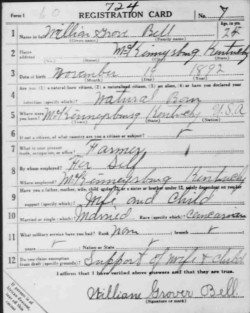 Form 1
724
REGISTRATION CARD No. 7
1 Name in full William Grover Bell Age, in yrs. 25
(Given name) (Family name)
2 Home address McKinneysburg Kentucky
3 Date of birth November 9 1892
(Month) (Day) (Year)
4 Natural Born
5 Where were you born? McKinneysburg Kentucky U.S.A
6 If not a citizen, of what country are you a citizen or subject?
7 What is your present trade, occupation, or office? Farmer
8 By whom employed? For Self
Where employed? McKinneysburg Kentucky
9 Have you a father, mother, wife, child under 12, or a sister or brother under 12, solely dependent on you for support (specify which)? Wife and Child
10 Married or single (which)? Married Race (specify which)? Caucasian
11 What military service have you had? Rank None branch
years Nation or State
12 Do you claim exemption from draft (specify grounds)? Support of Wife & Child
I affirm that I have verified above answers and that they are true.
William Grover Bell
(Signature or mark)